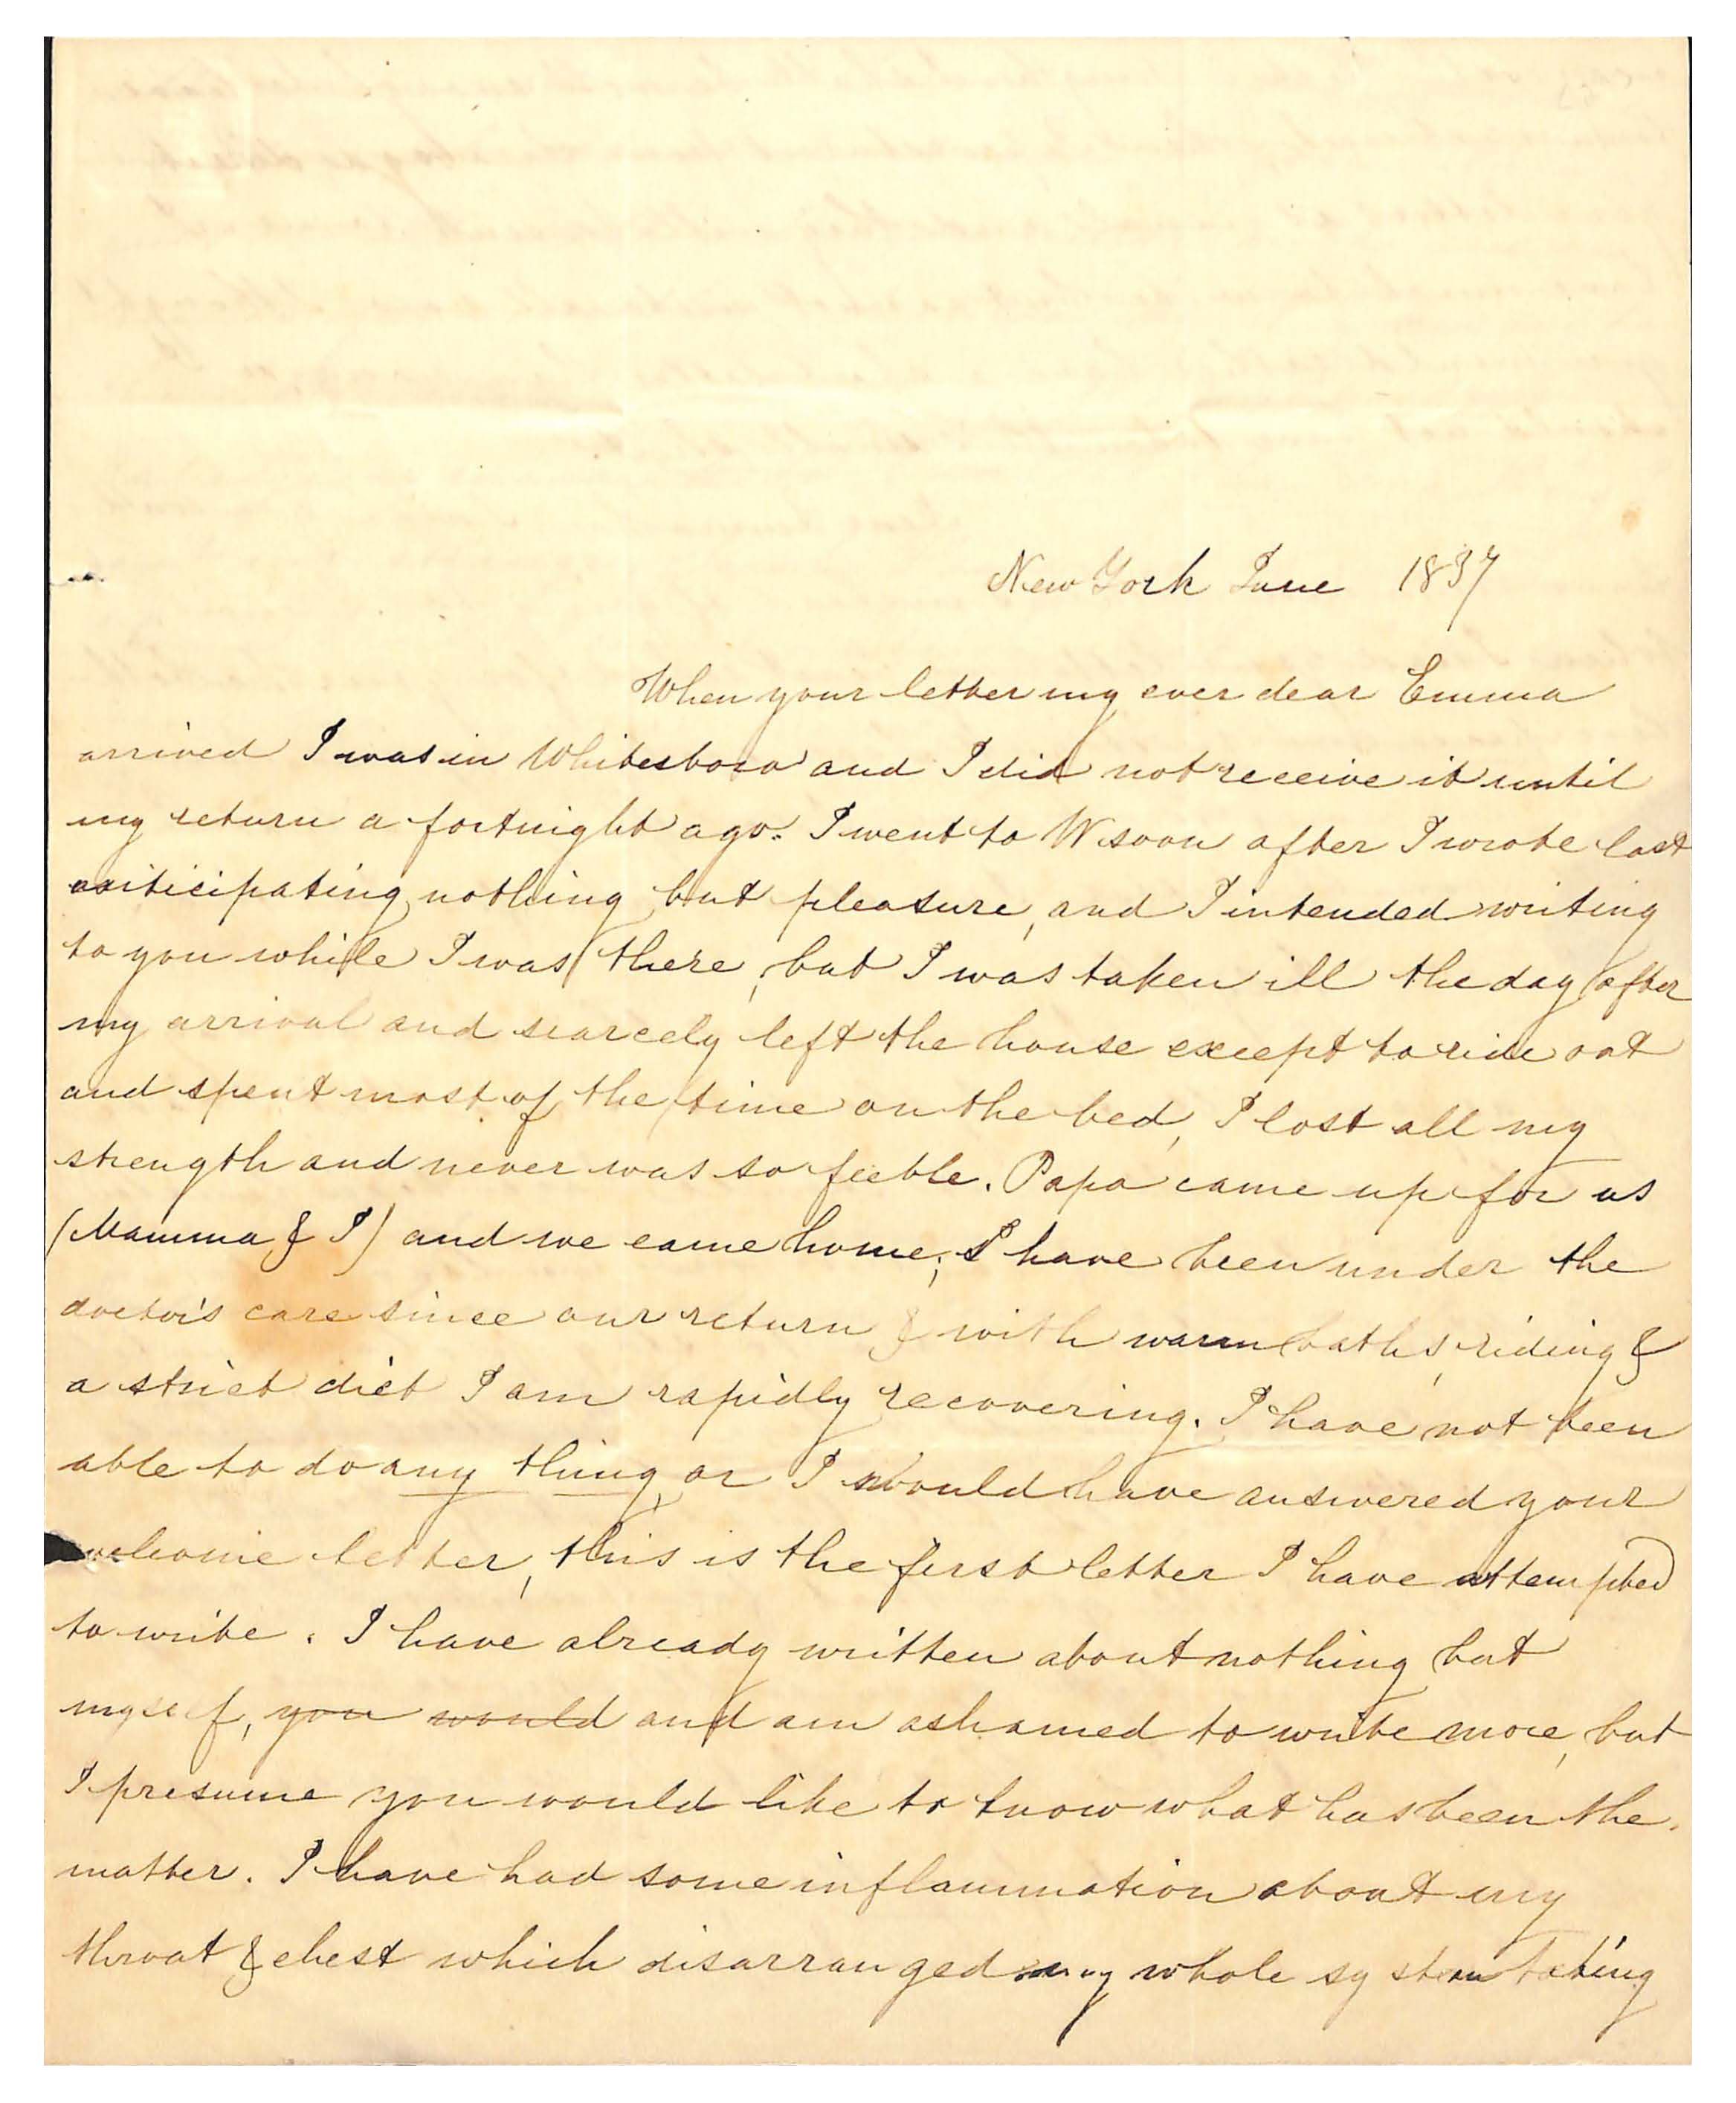 New York June 1837
When your letter my ever dear Emma
arrived I was in Whitesboro and I did not receive it until
my return a fortnight ago. I went to W soon after I wrote last
anticipating nothing but pleasure, and I intended writing
to you while I was there, but I was taken ill the day after
my arrival and scarcely left the house except to ride out
and spent most of the time on the bed, I lost all my
strength and never was so feeble. Papa came up for us
(Mamma & I) and we came home; I have been under the
doctor's care since our return & with warm baths, riding &
a strict diet I am rapidly recovering. I have not been
able to do any thing, or I would have answered your
welcome letter, this is the first letter I have attempted
to write. I have already written about nothing but
myself, you would and am ashamed to write more, but
I presume you would like to know what has been the
matter. I have had some inflammation about my
throat & chest which disarranged my whole system taking